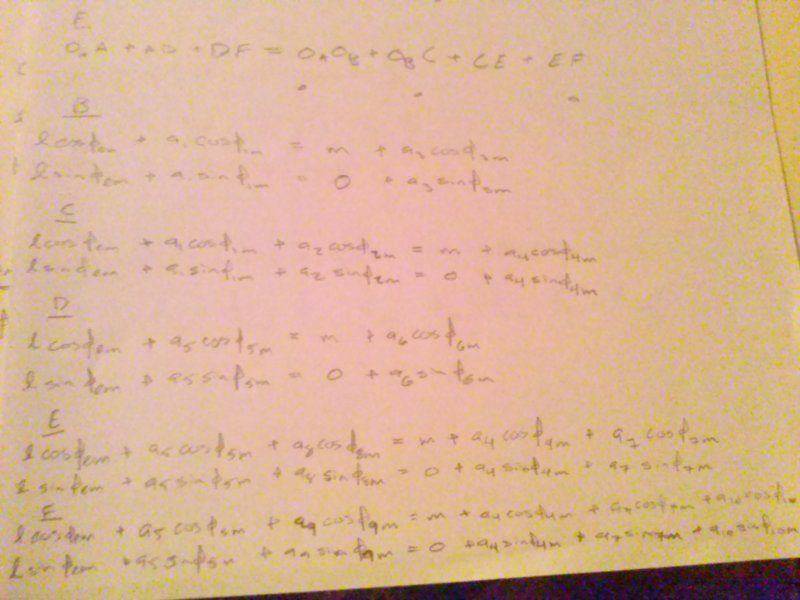 E
O_A A + AD + DF = O_A O_B + O_B C + CE + EF
B
l cosϕ_em + a_1 cosϕ_1m = m + a_3 cosϕ_3m
l sinϕ_em + a_1 sinϕ_1m = 0 + a_3 sinϕ_3m
C
l cosϕ_em + a_1 cosϕ_1m + a_2 cosϕ_2m = m + a_4 cosϕ_4m
l sinϕ_em + a_1 sinϕ_1m + a_2 sinϕ_2m = 0 + a_4 sinϕ_4m
D
l cosϕ_em + a_5 cosϕ_5m = m + a_6 cosϕ_6m
l sinϕ_em + a_5 sinϕ_5m = 0 + a_6 sinϕ_6m
E
l cosϕ_em + a_5 cosϕ_5m + a_8 cosϕ_8m = m + a_4 cosϕ_4m + a_7 cosϕ_7m
l sinϕ_em + a_5 sinϕ_5m + a_8 sinϕ_8m = 0 + a_4 sinϕ_4m + a_7 sinϕ_7m
F
l cosϕ_em + a_5 cosϕ_5m + a_9 cosϕ_9m = m + a_4 cosϕ_4m + a_7 cosϕ_7m + a_10 cosϕ_10m
l sinϕ_em + a_5 sinϕ_5m + a_9 sinϕ_9m = 0 + a_4 sinϕ_4m + a_7 sinϕ_7m + a_10 sinϕ_10m